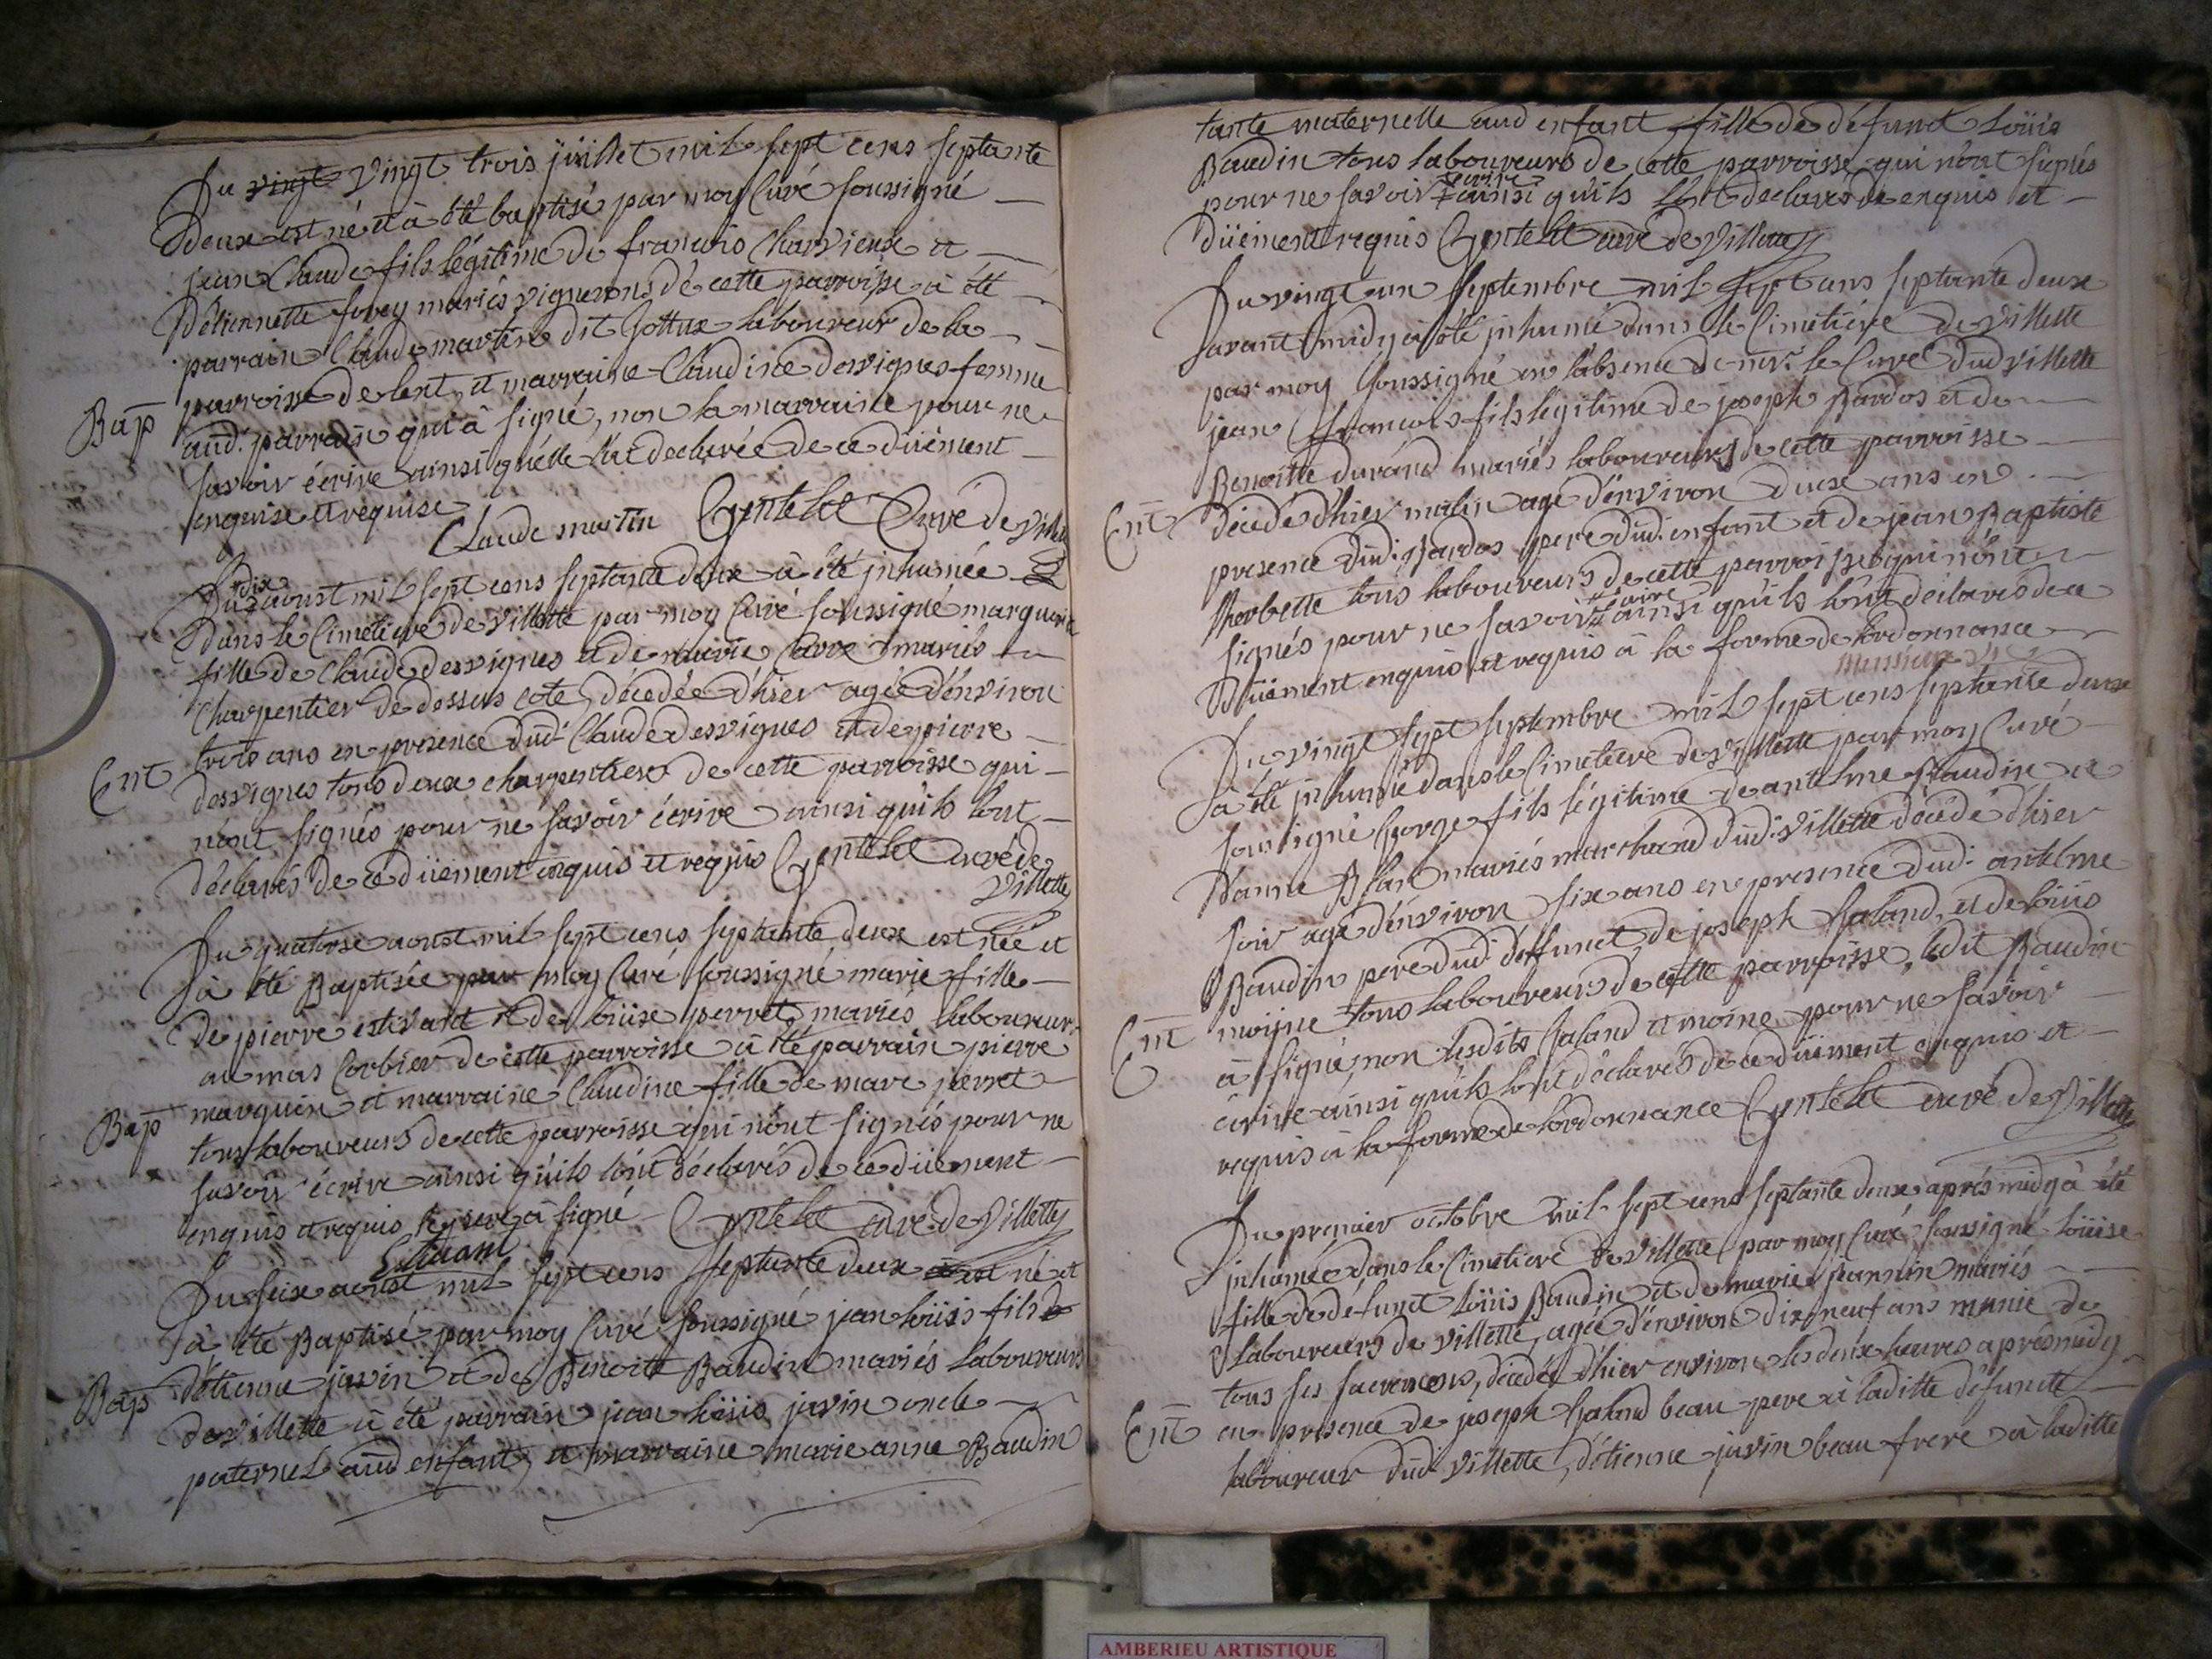 Du vingt vingt trois juillet mil sept cens septante
deux est né et à été baptisé par moy Curé soussigné
jean Claude fils légitime de francois Charvieux et
d'étiennette forey mariés vignerons de cette parroisse à été
parrain Claude martin dit Gottux laboureur de la
parroisse de lent, et marraine Claudine desvignes femme
Bap
aud. parrain qui à signé, non la marraine pour ne
savoir écrire ainsi quélle l'at declarée de ce düement
enquise et requise
Claude martin Gentelet Curé de Villette
Du dix aoust mil sept cens septante deux à été jnhumée
dans le Cimetiere de Villette par moy Curé soussigné marguerite
fille de Claude desvignes et de marie Carre mariés
Charpentier de dessus cote, décedée d'hier agée d'énviron
trois ans en presence dud. Claude desvignes et de pierre
Ent
desvignes tous deux charpentiers de cette parroisse qui
n'ont signés pour ne savoir écrire ainsi quils l'ont
déclarés de ce düement enquis et requis Gentelet curé de
Villette
Du quatorse aoust mil sept cens septante deux est née et
à été Baptisée par moy Curé soussigné marie fille
de pierre estivant et de loüise perret mariés laboureurs
au mas Corbier de cette parroisse à été parrain pierre
marguin et marraine Claudine fille de marc perret
Bap
tous laboureurs de cette parroisse qui n'ont signés pour ne
savoir écrire ainsi qu'ils l'ont déclarés de ce düement
enquis et requis le pere à signé Gentelet curé de Villette
Estivant
Du seise aoust mil sept cens septante deux est né et
à été Baptisé par moy Curé soussigné jean loüis fils
d'étienne juvin et de Benoite Baudin mariés laboureurs
Bap
de Villette à été parrain jean loüis juvin oncle
paternel aud enfant, et marraine marie anne Baudin
tante maternelle aud enfant fille de défunct loüis
Baudin tous laboureurs de cette parroisse qui n'ont signés
pour ne savoir écrire ainsi qu'ils l'ont declarés de enquis et
düement requis Gentelet curé de Villette
Du vingt un septembre mil sept cens septante deux
avant midy à été jnhumé dans le Cimetiére de Villette
par moy soussigné en l'absence de mr. le Curé dud Villette
jean francois fils légitime de joseph Pardos et de
Benoitte durand mariés laboureurs de cette parroisse
Ent
décedé d'hier matin agé d'énviron deux ans en
presence dud. Pardos pere dud. enfant et de jean Baptiste
therbette tous laboureurs de cette parroisse qui n'ont
signés pour ne savoir écrire ainsi qu'ils l'ont déclarés de ce
düement enquis et requis à la forme de l'ordonnance
Du vingt sept septembre mil sept cens septante deux
à été jnhumé dans le Cimetiere de Villette par moy Curé
soussigné George fils légitime de antelme Baudin et
d'anne Blanc mariés marchand dud. Villette décédé d'hier
soir agé d'énviron six ans en presence dud. antelme
Baudin pere dud. défunct, de joseph Galand, et de loüis
Ent
moijne tous laboureurs de cette parroisse, ledit Baudin
à signé, non lesdits Galand et moine pour ne savoir
écrire ainsi qu'ils l'ont déclarés de ce düement enquis et
requis à la forme de l'ordonnance Gentelet curé de Villette
Du premier octobre mil sept cens septante deux aprés midy à été
jnhumée dans le Cimetiere de Villette par moy Curé soussigné loüise
fille de défunct loüis Baudin et de marie jeannin mariés
laboureurs de Villette, agée d'énviron dix neuf ans munie de
tous ses sacremens, décedée d'hier environ les deux heures aprés midy
Ent
en presence de joseph Galand beau pere à laditte défuncte
laboureur dud. Villette, d'étienne juvin beau frere à laditte
AMBERIEU ARTISTIQUE